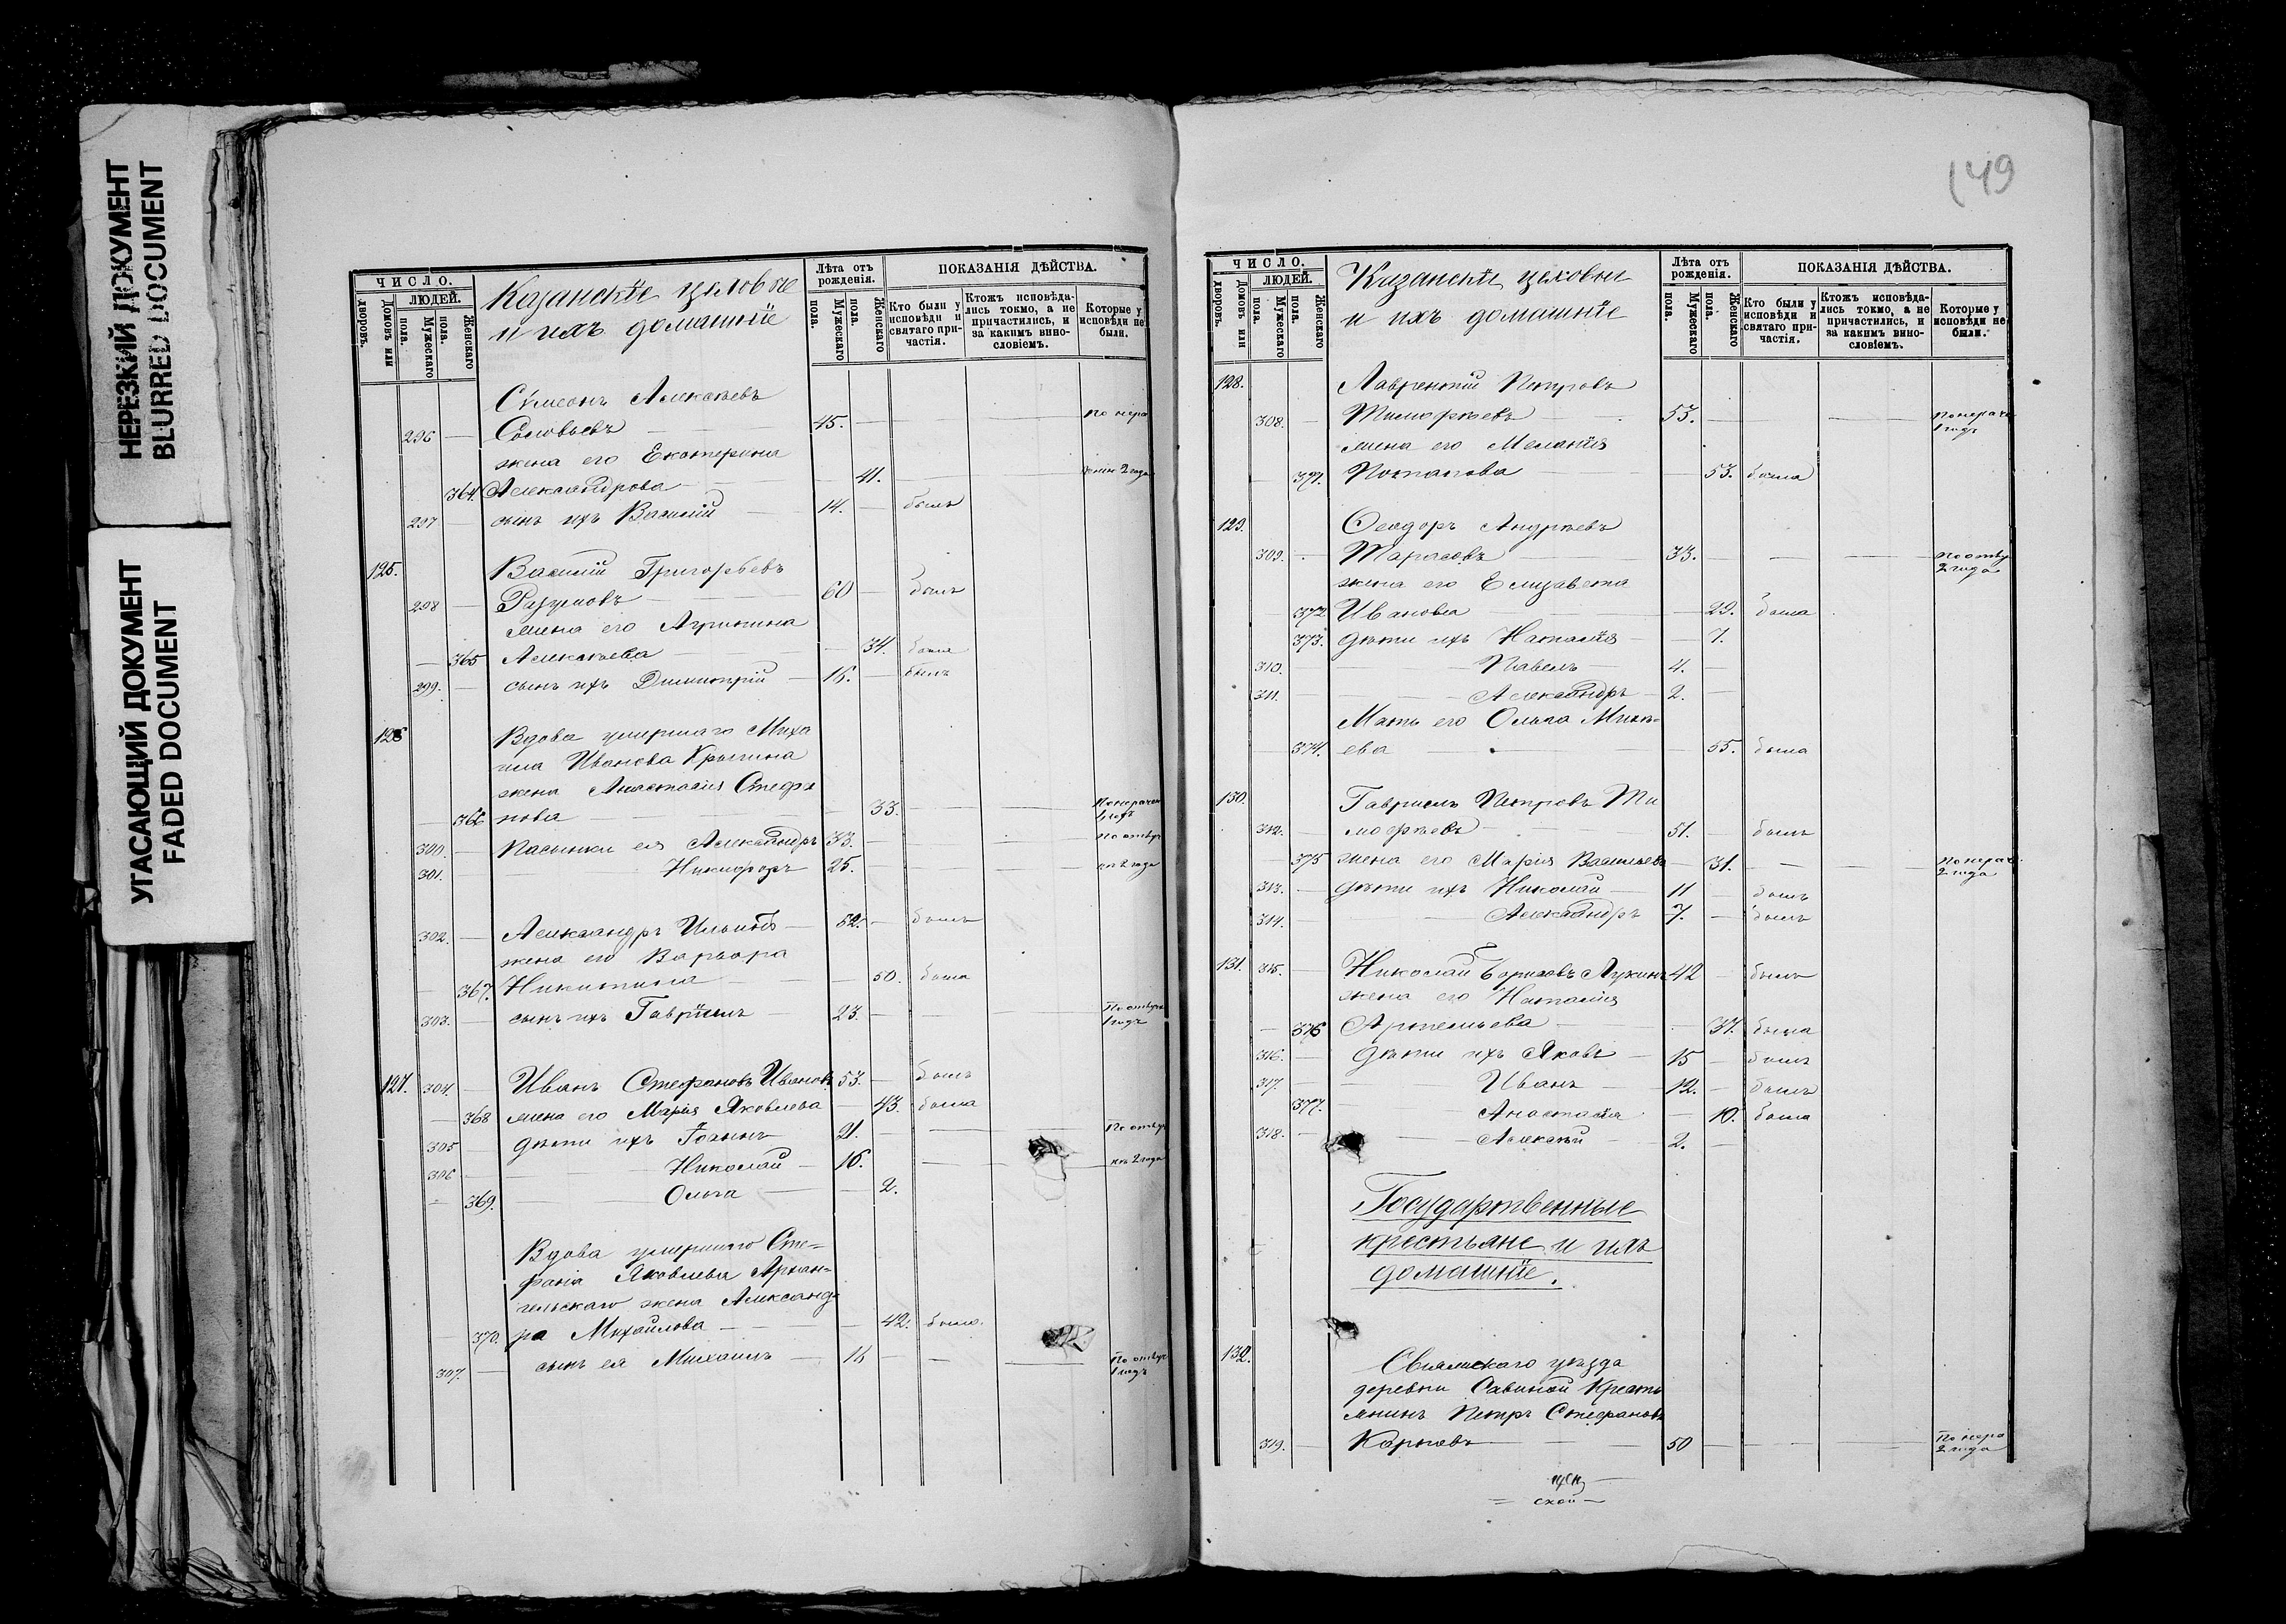 НЕРЕЗКИЙ ДОКУМЕНТ
BLURRED DOCUMENT
УГАСАЮЩИЙ ДОКУМЕНТ
FADED DOCUMENT
ЧИСЛО.
ЛЮДЕЙ.
Домовъ или дворовъ.
Мужескаго пола.
Женскаго пола.
Казанскіе цеховые
и ихъ домашніе
Лѣта отъ рожденія.
Мужескаго пола.
Женскаго пола.
ПОКАЗАНІЯ ДѢЙСТВА.
Кто были у исповѣди и святаго причастія.
Ктожъ исповѣдались токмо, а не причастились, и за какимъ винословіемъ.
Которые у исповѣди не были.
Сѵмеонъ Алексѣевъ
296 — Соловьевъ 45. — по нера
жена его Екатерина
364. Александрова 41. — 2 года
297 — сынъ ихъ Василій 14. — былъ
125. Василій Григорьевъ
298 — Разумовъ 60 — былъ
жена его Агрипина
— 365 Алексѣева — 34. была
299. — сынъ ихъ Димитрій — 16. — былъ
126 Вдова умершаго Миха
ила Иванова
жена Анастасія Стефа
366 нова 33. — По нераче 1 годъ
300. — Пасынки ея Александръ 33. — По отлуч
301. — Никифоръ 25. — 2 года
302. — Александръ Ильинъ — 52. — былъ
жена его Варвара
— 367. Никитина — 50. была
303. — сынъ ихъ Гавріилъ — 23. — По отлуч 1 годъ
127. 304. — Иванъ Стефановъ Ивановъ 53. — былъ
— 368 жена его Марія Яковлева — 43. была
305 — дѣти ихъ Іоаннъ 21. — По отлуч
306 — Николай — 16. — 2 года
— 369. — Ольга — 2.
Вдова умершаго Сте-
фана Яковлева Архан-
гельскаго жена Александ-
— 370. ра Михайлова — 42. была.
307. — сынъ ея Михаилъ — 18 — По отлуч 1 годъ
149
ЧИСЛО.
ЛЮДЕЙ.
Домовъ или дворовъ.
Мужескаго пола.
Женскаго пола.
Казанскіе цеховые
и ихъ домашніе
Лѣта отъ рожденія.
Мужескаго пола.
Женскаго пола.
ПОКАЗАНІЯ ДѢЙСТВА.
Кто были у исповѣди и святаго причастія.
Ктожъ исповѣдались токмо, а не причастились, и за какимъ винословіемъ.
Которые у исповѣди не были.
128. Лаврентій Петровъ
308. — Тимофѣевъ 53. — По нераче 1 годъ
жена его Меланія
— 371. Потапова — 53. была
129. Ѳеодоръ Андреевъ
309. — Тарасовъ 33. — По отлуч 2 года
жена его Елизавета
— 372 Иванова — 29. была
373. дѣти ихъ Наталія — 7.
310. — Павелъ — 4. —
311. — Александръ — 2. —
Мать его Ольга Михѣ-
— 374. ева — 55. была
130. Гавріилъ Петровъ Ти
312. — мофѣевъ — 51. — былъ
375 жена его Марія Васильева — 31. — По нерач. 2 года
313. — дѣти ихъ Николай — 11 — былъ
314. — Александръ 7. — былъ
131. 315. — Николай Борисовъ Лукинъ 42 — былъ
жена его Наталія
— 376 Артемьева — 37. была
316. — дѣти ихъ Яковъ — 15 — былъ
317. — Иванъ — 12. — былъ
377. — Анастасія — 10. была
318. — Алексѣй — 2. —
Государственные
крестьяне и ихъ
домашніе.
132. Свіяжскаго уѣзда
деревни Савиной Кресть
янинъ Петръ Стефановъ
319. — Карповъ — 50 — По нера 2 года